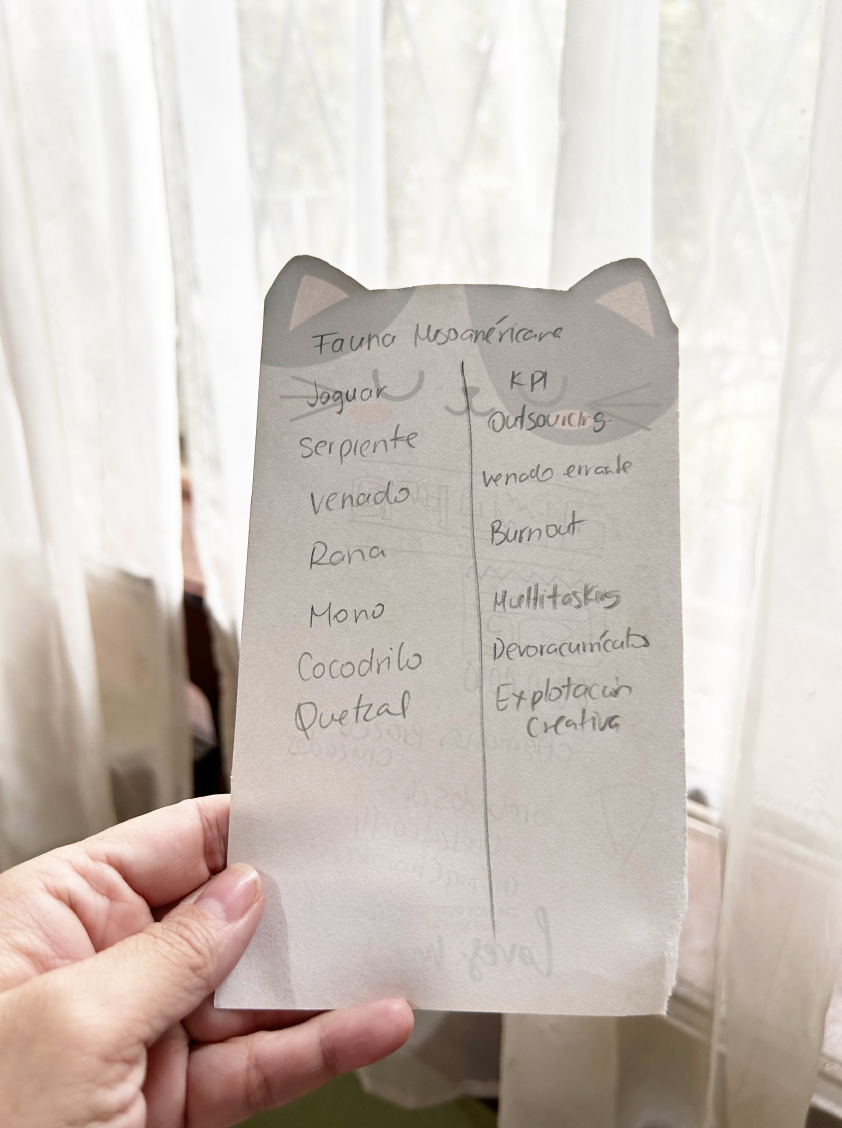 Fauna Mesoaméricana
Jaguar
Serpiente
Venado
Rana
Mono
Cocodrilo
Quetzal
KPI
Outsourcing.
venado errante
Burnout
Multitasking
Devoracurrículos
Explotación
Creativa